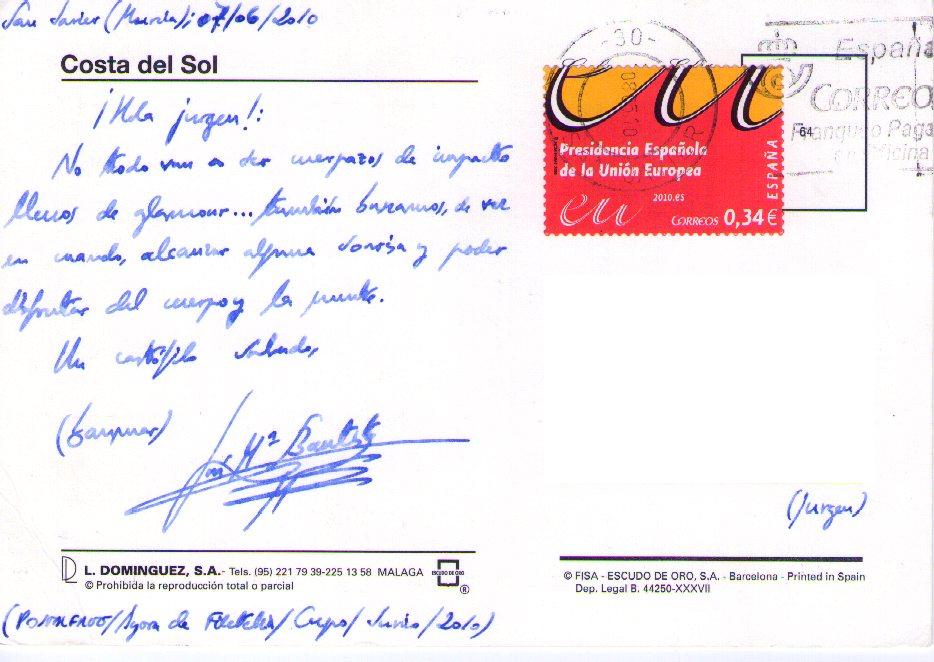 San Javier (Murcia); 07/06/2010
Costa del Sol
¡Hola jurgen!:
No todo van a ser cuerpazos de impacto
llenos de glamour... también buscamos, de vez
en cuando, alcanzar alguna sonrisa y poder
disfrutar del cuerpo y la mente.
Un cartófilo saludo,
José Mª Bautista
L. DOMINGUEZ, S.A.- Tels. (95) 221 79 39-225 13 58 MALAGA ESCUDO DE ORO ®
© Prohibida la reproducción total o parcial
(/Ágora de Filatelia/ Cuerpo/ Junio/2010)
-30-
España
CORREO
Franqueo Paga
en Oficina
64
Presidencia Española
de la Unión Europea
2010.es
eu
CORREOS 0,34 €
ESPAÑA
(Jurgen)
© FISA - ESCUDO DE ORO, S.A. - Barcelona - Printed in Spain
Dep. Legal B. 44250-XXXVII